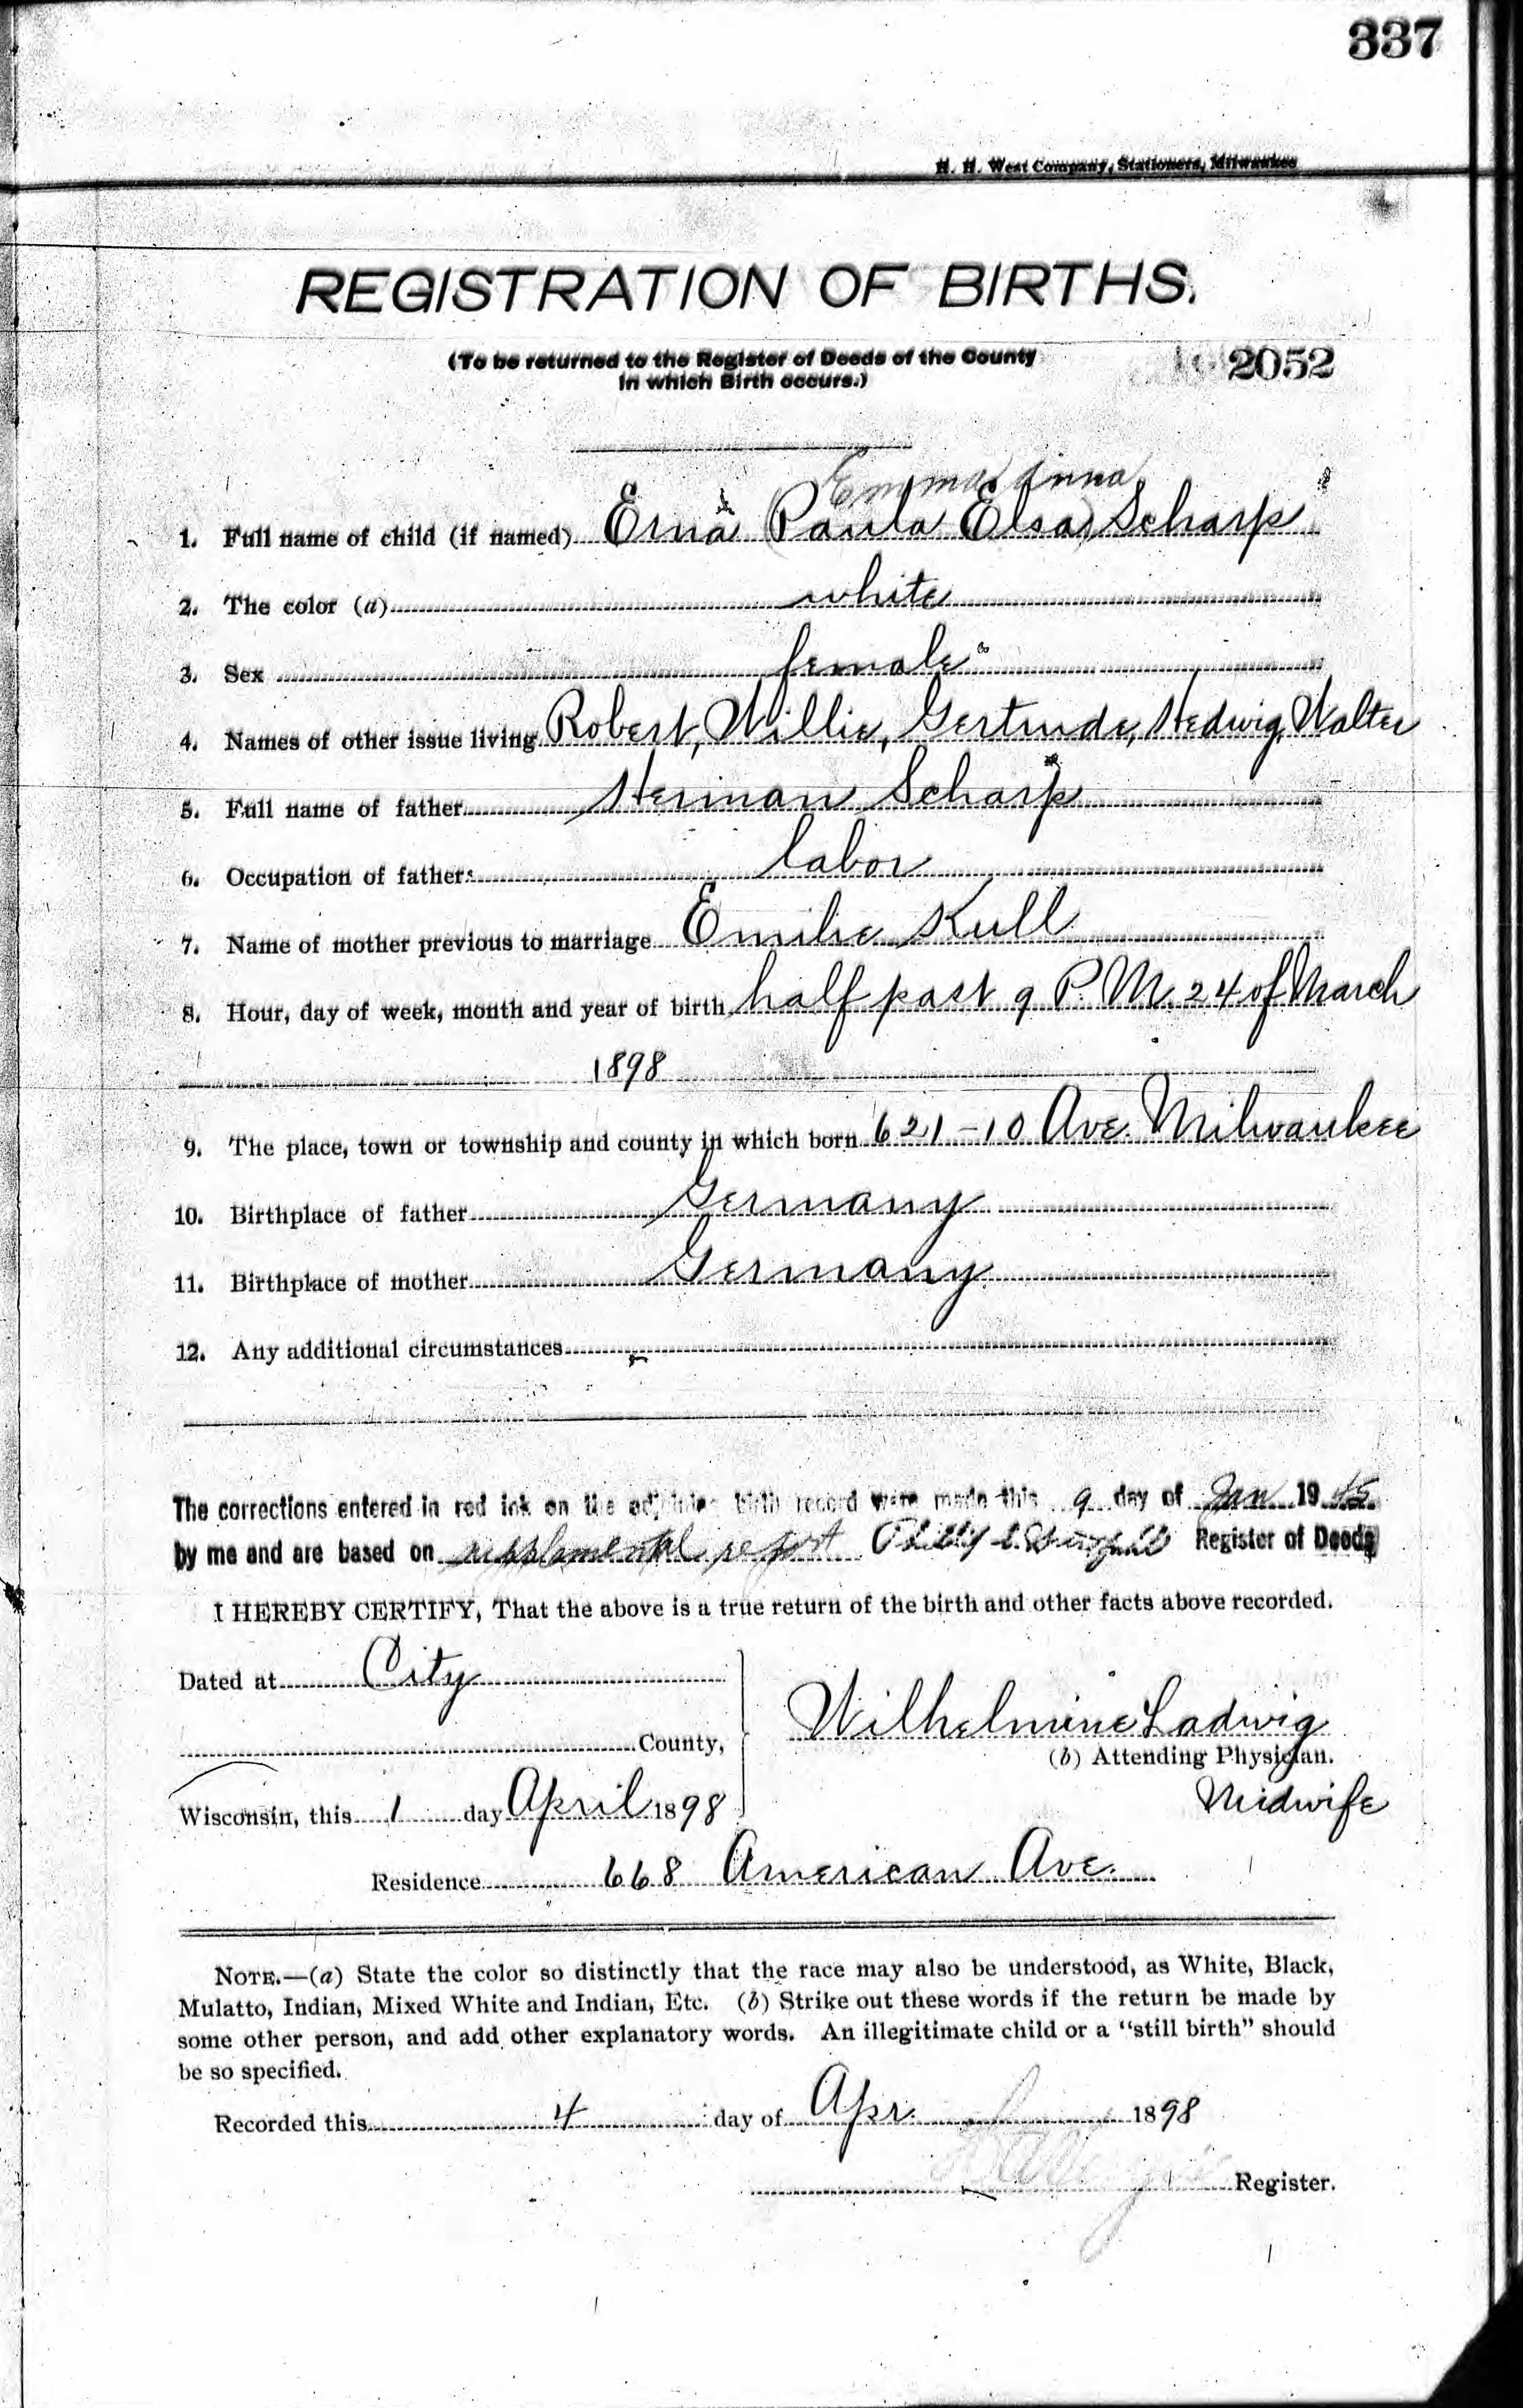 337
H. H. West Company, Stationers, Milwaukee
REGISTRATION OF BIRTHS.
(To be returned to the Register of Deeds of the County
in which Birth occurs.)
2052
Emma Anna
1. Full name of child (if named) Erna (Paula Elsa) Scharp
2. The color (a) white
3. Sex female
4. Names of other issue living Robert, Willie, Gertrude, Hedwig, Walter
5. Full name of father Herman Scharp
6. Occupation of father labor
7. Name of mother previous to marriage Emilie Kull
8. Hour, day of week, month and year of birth half past 9 P. M. 24 of March
1898
9. The place, town or township and county in which born 621-10 Ave. Milwaukee
10. Birthplace of father Germany
11. Birthplace of mother Germany
12. Any additional circumstances
The corrections entered in red ink on the adjoining birth record were made this 9 day of Jan 1945
by me and are based on supplemental report Register of Deeds
I HEREBY CERTIFY, That the above is a true return of the birth and other facts above recorded.
Dated at City
County,
Wilhelmine Ladwig
(b) Attending Physician.
Midwife
Wisconsin, this 1 day April 1898
Residence 668 American Ave.
NOTE.—(a) State the color so distinctly that the race may also be understood, as White, Black,
Mulatto, Indian, Mixed White and Indian, Etc. (b) Strike out these words if the return be made by
some other person, and add other explanatory words. An illegitimate child or a "still birth" should
be so specified.
Recorded this 4 day of Apr. 1898
Register.